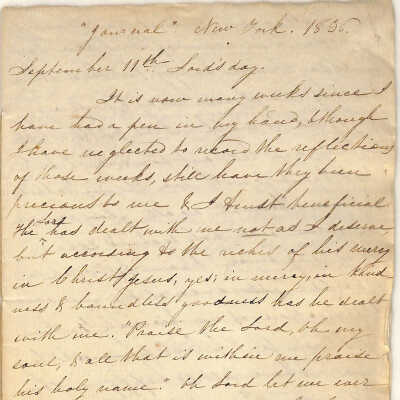 "Journal" New York. 1836.
September 11th Lord's day.
It is now many weeks since I
have had a pen in my hand, though
I have neglected to record the reflections
of those weeks, still have they been
precious to me & I trust beneficial
The Lord has dealt with me not as I deserve
but according to the riches of his mercy
in Christ Jesus, yes; in mercy, in kind
ness & boundless goodness has he dealt
with me. "Praise the Lord, Oh my
soul, & all that is within me praise
his holy name." Oh Lord let me ever